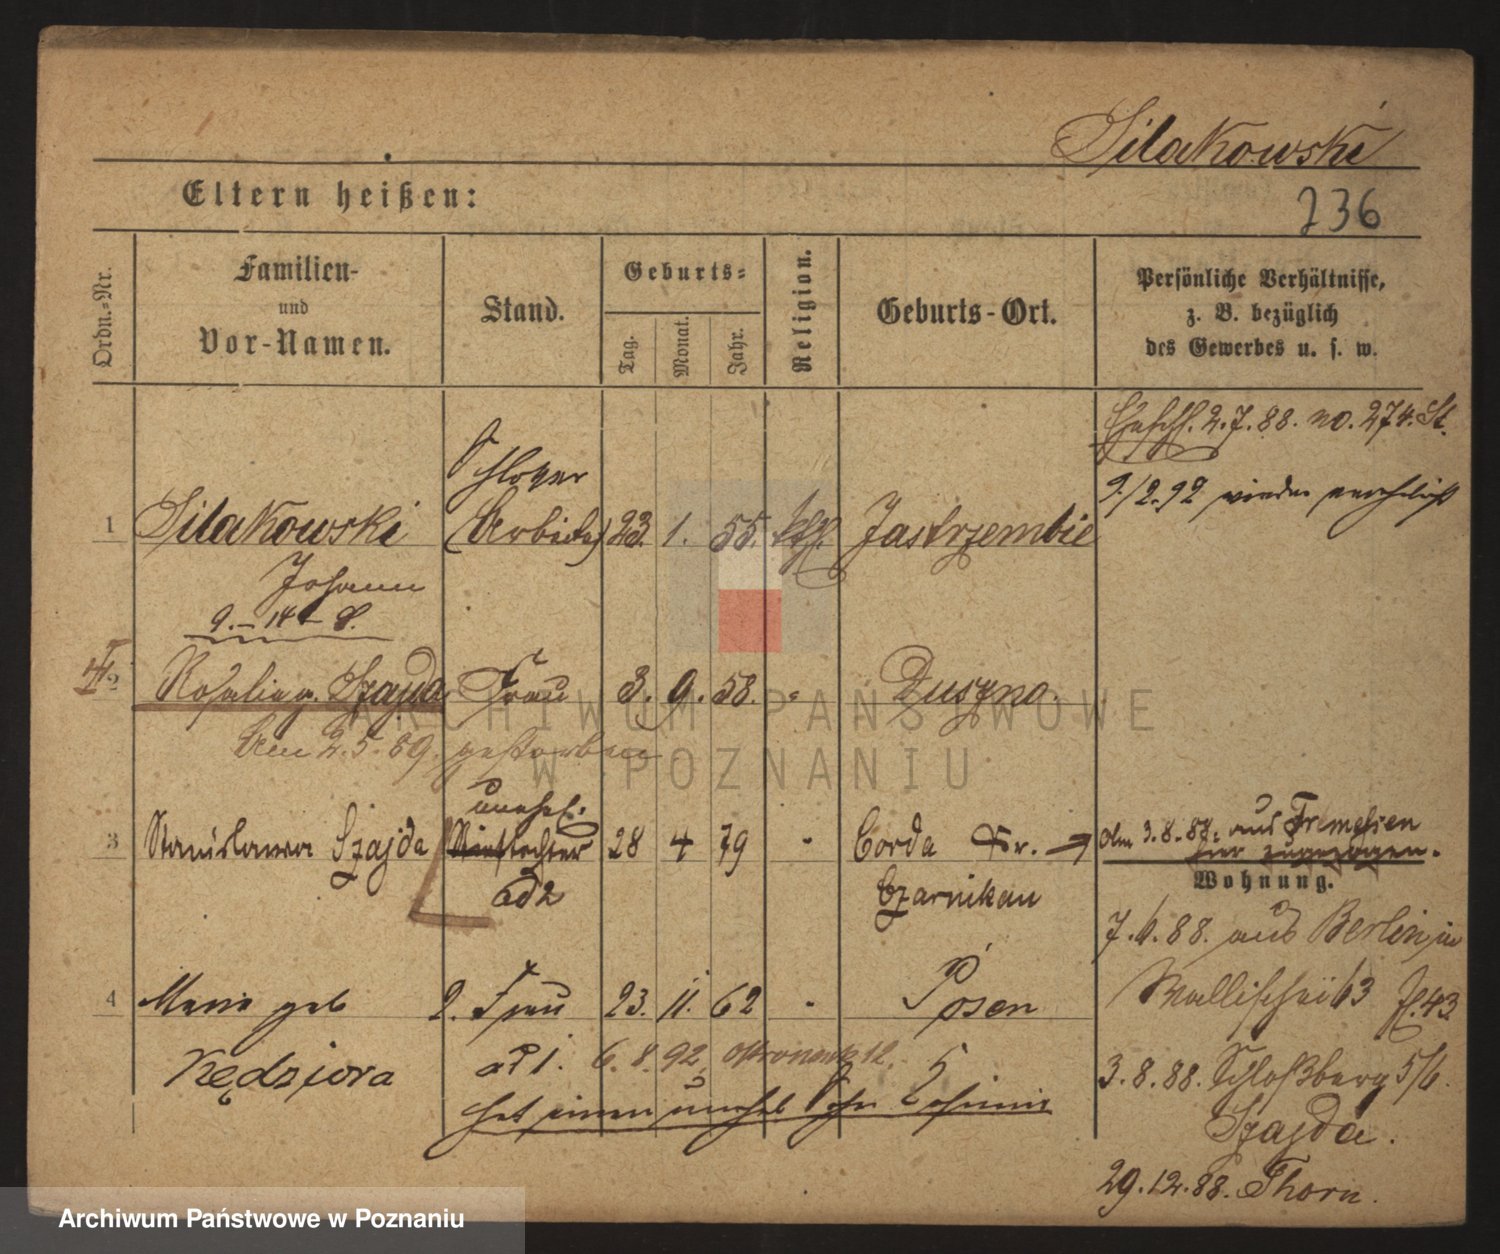 Silakowski
Eltern heißen:
236
Ordn.-Nr.
Familien-
und
Vor-Namen.
Stand.
Geburts-
Tag.
Monat.
Jahr.
Religion.
Geburts-Ort.
Persönliche Verhältnisse,
z. B. bezüglich
des Gewerbes u. s. w.
2.7.88. no. 274. St.
9./2.92 wieder verehelicht
Schlosser
1 Silakowski (Arbeiter) 23. 1. 55. kth. Jastrzembie
Johann
9. – 14 – 8.
2 Rosalie Szajda Frau 3. 9. 58. " Duszno.
Am 2.5.89 gestorben
unehel.
3 Stanislawa Szajda tochter 28 4 79 " Corda Kr.
ad 2 Czarnikau
Am 3.8.88. aus Tremessen
hier zugezogen.
Wohnung.
7.6.88. aus Berlin, in
4 Marie geb 2. Frau 23. 11. 62 " Posen
Kędziora ad 1. 6.8.92 Ostrowek 12.
hat einen unehel Sohn Casimir
Wallischei 63
3.8.88. Schloßberg 5/6.
Szajda.
29.12.88. Thorn.
ARCHIWUM PAŃSTWOWE
W POZNANIU
Archiwum Państwowe w Poznaniu